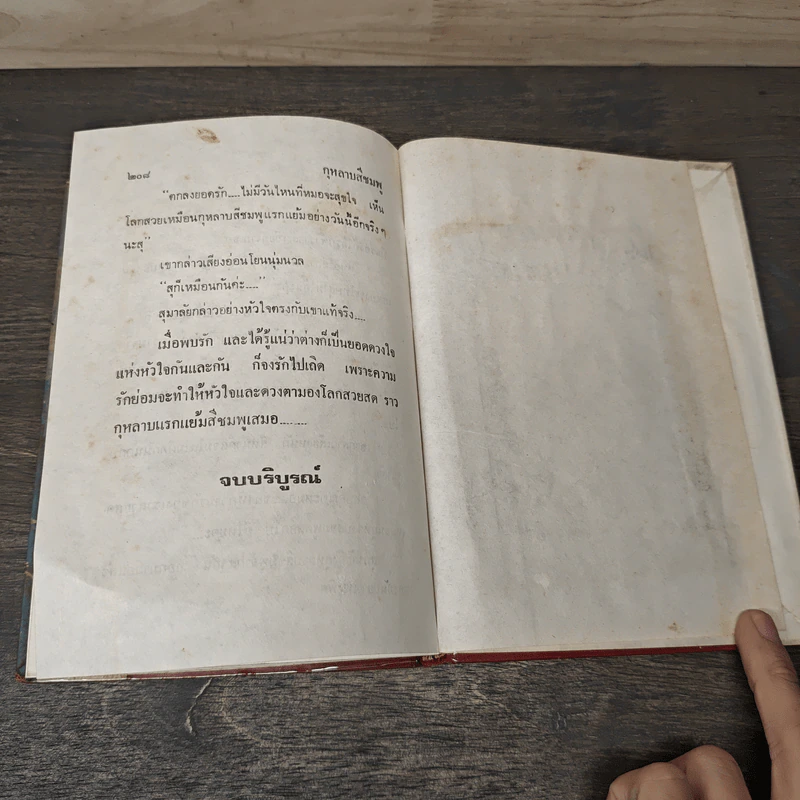 ๒๐๘ กุหลาบสีชมพู
"ตกลงยอดรัก....ไม่มีวันไหนที่หมอจะสุขใจ เห็น
โลกสวยเหมือนกุหลาบสีชมพูแรกแย้มอย่างวันนี้อีกจริง ๆ
นะสุ"
เขากล่าวเสียงอ่อนโยนนุ่มนวล
"สุก็เหมือนกันค่ะ...."
สุมาลัยกล่าวอย่างหัวใจตรงกับเขาแท้จริง....
เมื่อพบรัก และได้รู้แน่ว่าต่างก็เป็นยอดดวงใจ
แห่งหัวใจกันและกัน ก็จงรักไปเถิด เพราะความ
รักย่อมจะทำให้หัวใจและดวงตามองโลกสวยสด ราว
กุหลาบแรกแย้มสีชมพูเสมอ.........
จบบริบูรณ์